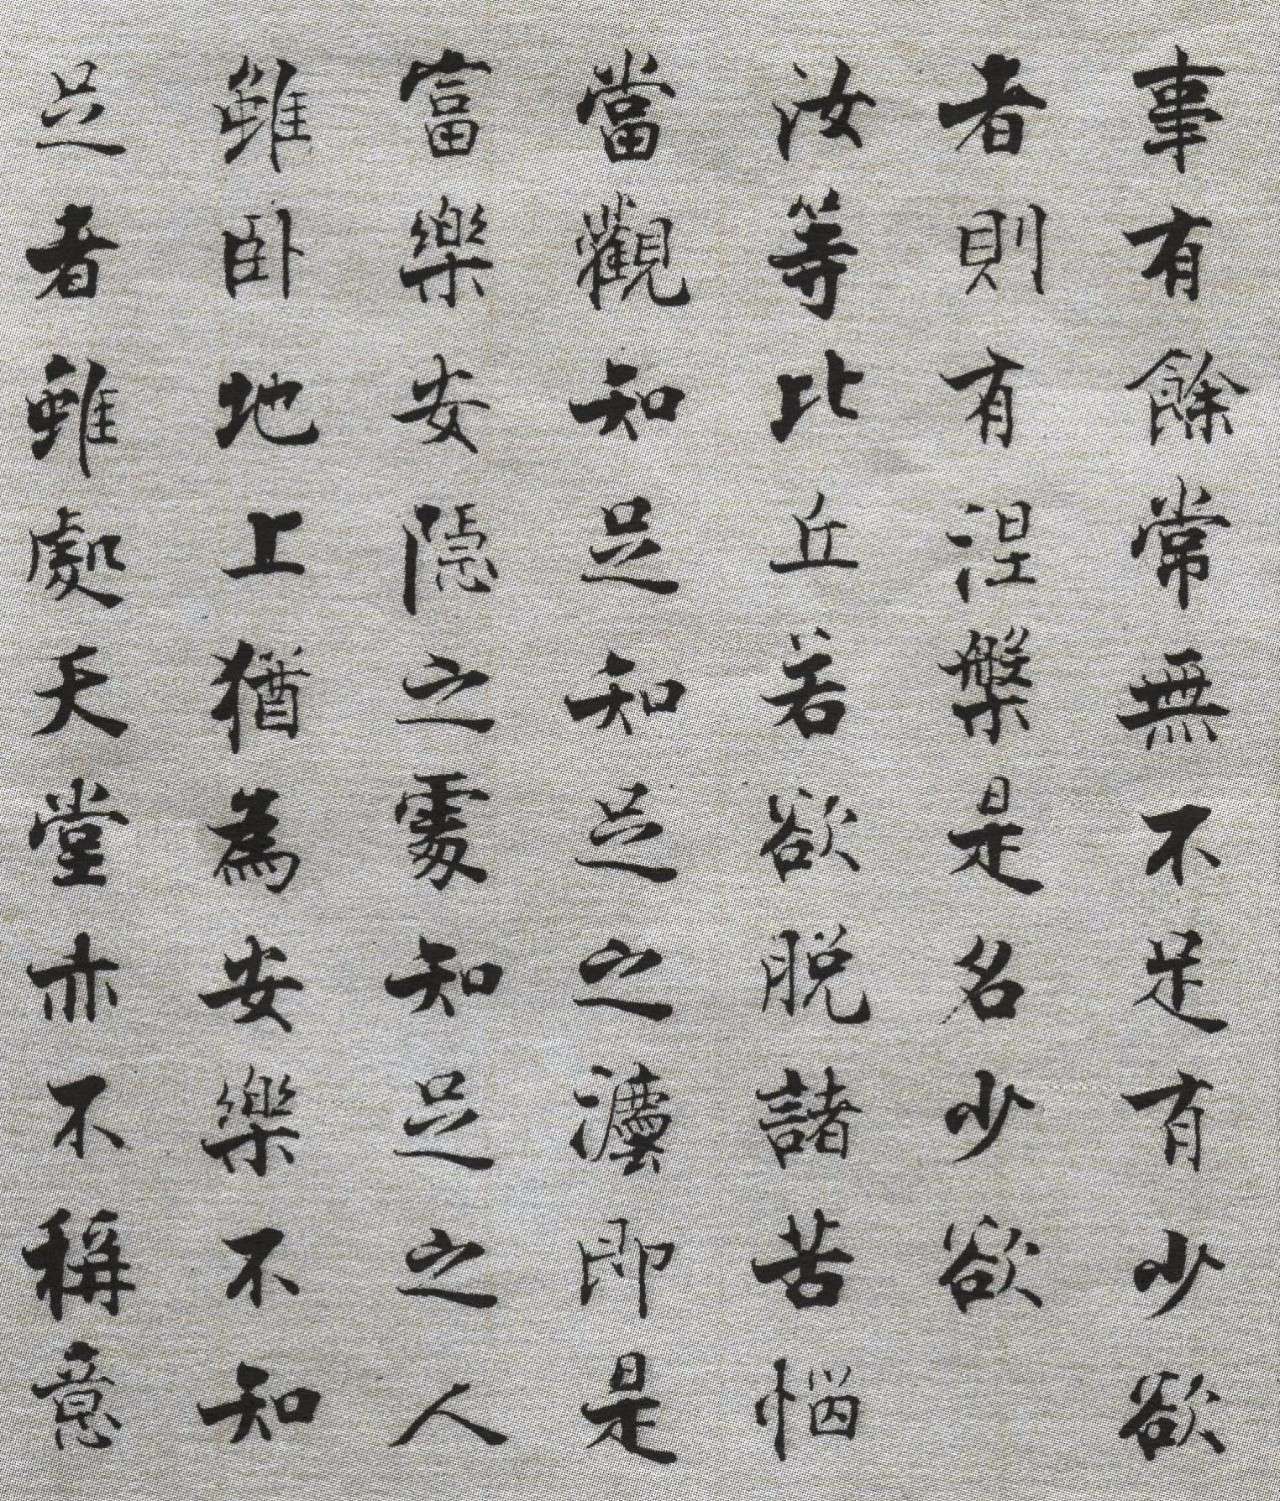 事有餘常無不足有少欲
者則有涅槃是名少欲
汝等比丘若欲脫諸苦惱
當觀知足知足之灋即是
富樂安隱之處知足之人
雖卧地上猶為安樂不知
足者雖處天堂亦不稱意